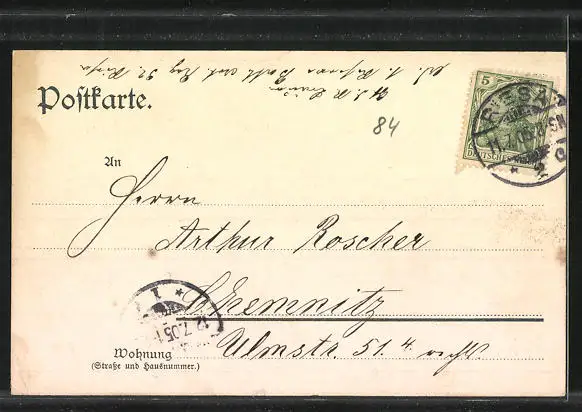 Postkarte.
84
5
DEUTSCHES
RIESA
11.7.05
An
Herrn
Arthur Roscher
Chemnitz
Ulmstr. 51.4. rechts.
12.7.05
Wohnung
(Straße und Hausnummer.)